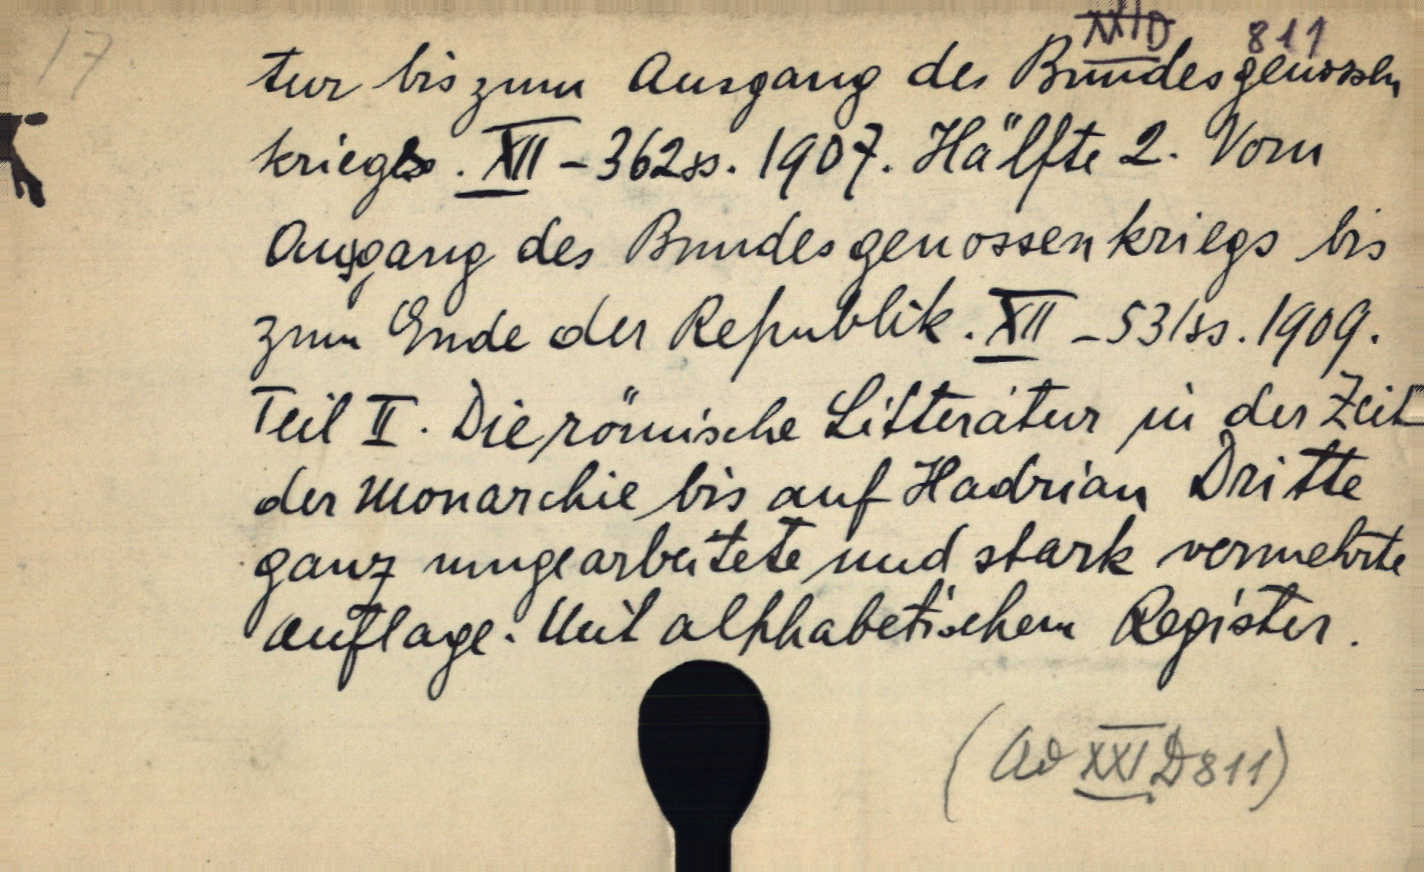 17
XXI D 811
tur bis zum Ausgang des Bundesgenossen
kriegs. XII - 362ss. 1907. Hälfte 2. Vom
Ausgang des Bundesgenossenkriegs bis
zum Ende der Republik. XII - 531ss. 1909.
Teil II. Die römische Litteratur in der Zeit
der Monarchie bis auf Hadrian Dritte
ganz umgearbeitete und stark vermehrte
Auflage. Mit alphabetischem Register.
(Ad XXI D 811)